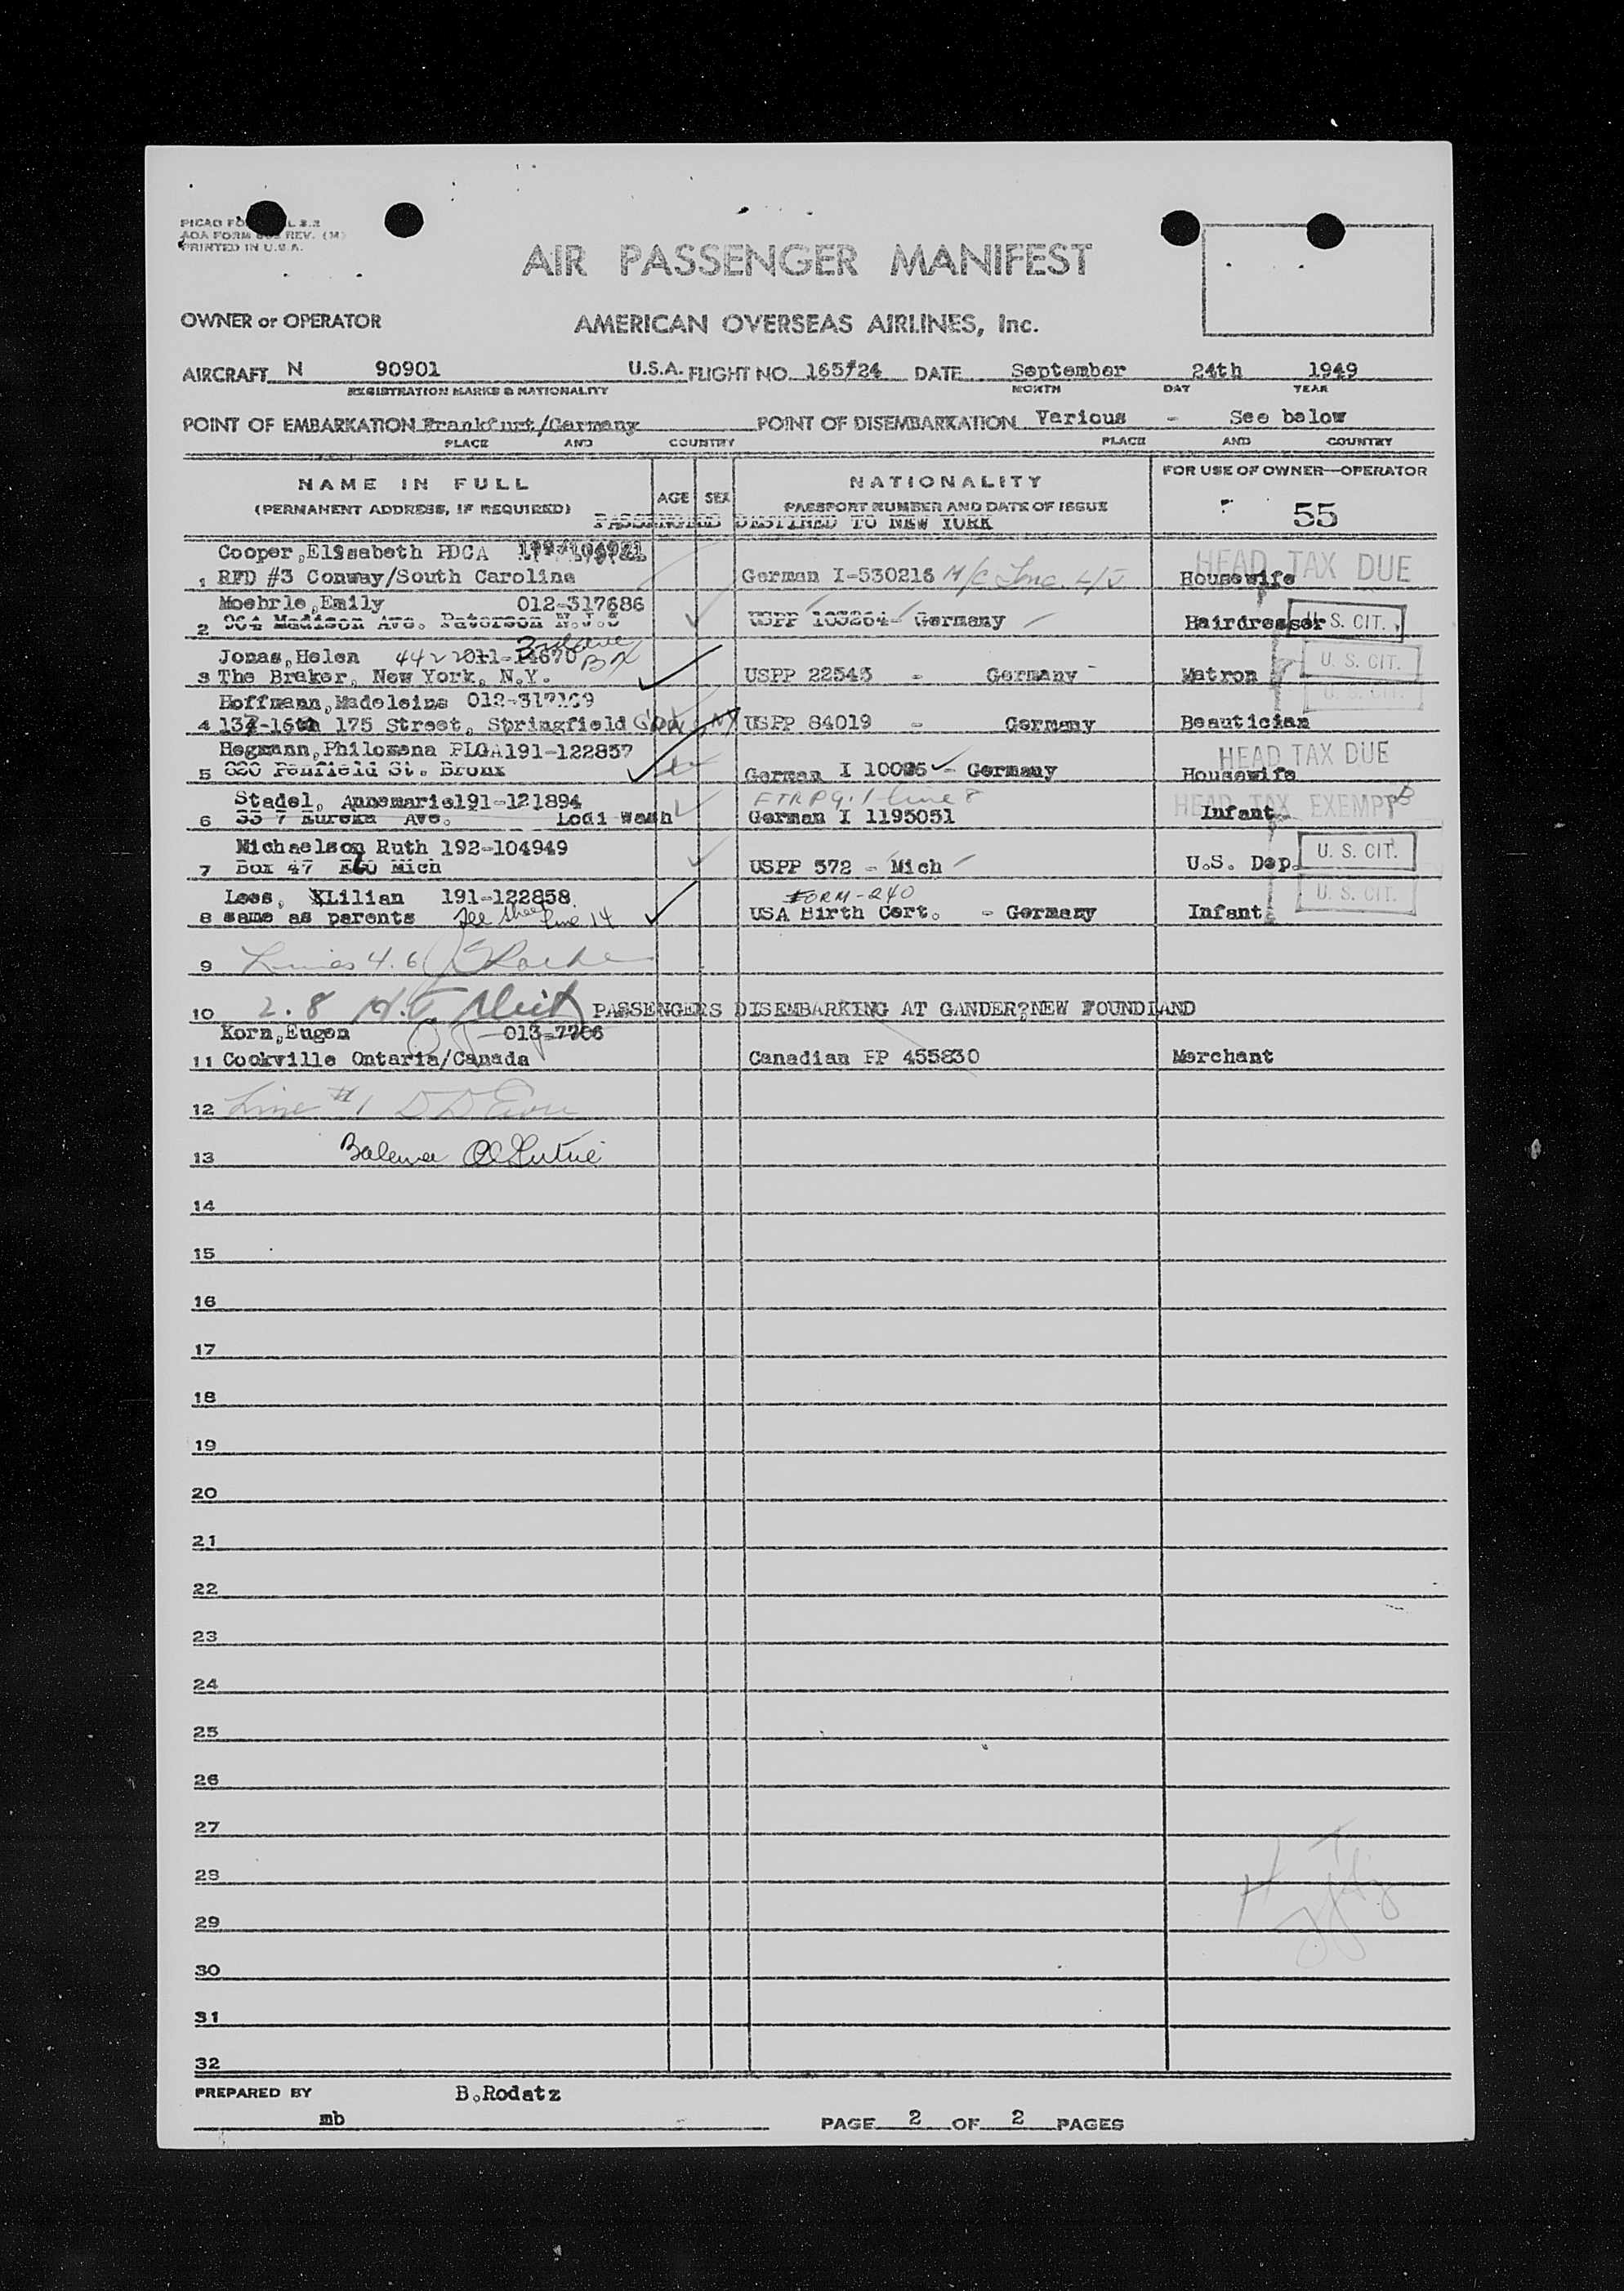 PRINTED IN U.S.A.
AIR PASSENGER MANIFEST
OWNER or OPERATOR
AMERICAN OVERSEAS AIRLINES, Inc.
AIRCRAFT N 90901 U.S.A. FLIGHT NO. 165/24 DATE September 24th 1949
REGISTRATION MARKS & NATIONALITY MONTH DAY YEAR
POINT OF EMBARKATION Frankfurt/Germany POINT OF DISEMBARKATION Various - See below
PLACE AND COUNTRY PLACE AND COUNTRY
NAME IN FULL
(PERMANENT ADDRESS, IF REQUIRED)
AGE SEX
NATIONALITY
PASSPORT NUMBER AND DATE OF ISSUE
FOR USE OF OWNER—OPERATOR
55
PASSENGERS DESTINED TO NEW YORK
Cooper,Elisabeth PDCA
HEAD TAX DUE
1 RFD #3 Conway/South Carolina German I-530216 Housewife
Moehrle,Emily 012-317686
2 964 Madison Ave. Paterson N.J. USPP 103264- Germany Hairdresser U. S. CIT.
Jonas,Helen 4422 BX
U. S. CIT.
3 The Braker, New York, N.Y. USPP 22543 - Germany - Matron
Hoffmann,Madeleine 012-317109
U. S. CIT.
4 175 Street, Springfield USPP 84019 - Germany Beautician
Hegmann,Philomena PLGA191-122857
HEAD TAX DUE
5 820 Penfield St. Bronx German I - Germany Housewife
Stadel, Annemarie191-121894
HEAD TAX EXEMPT
6 33 7 Eureka Ave. Lodi Wash German I 1195051 Infant
Michaelson Ruth 192-104949
7 Box 47 Mich USPP 572 - Mich U.S. Dep. U. S. CIT.
Lees, XLilian 191-122858
FORM-240
U. S. CIT.
8 same as parents See line 14 USA Birth Cert. - Germany Infant
9 Lines 4.6
10 2.8 PASSENGERS DISEMBARKING AT GANDER?NEW FOUNDLAND
Korn,Eugen 013-7706
11 Cookville Ontaria/Canada Canadian PP 455830 Merchant
12 Line #1
13
14
15
16
17
18
19
20
21
22
23
24
25
26
27
28
29
30
31
32
PREPARED BY B.Rodatz
mb
PAGE 2 OF 2 PAGES